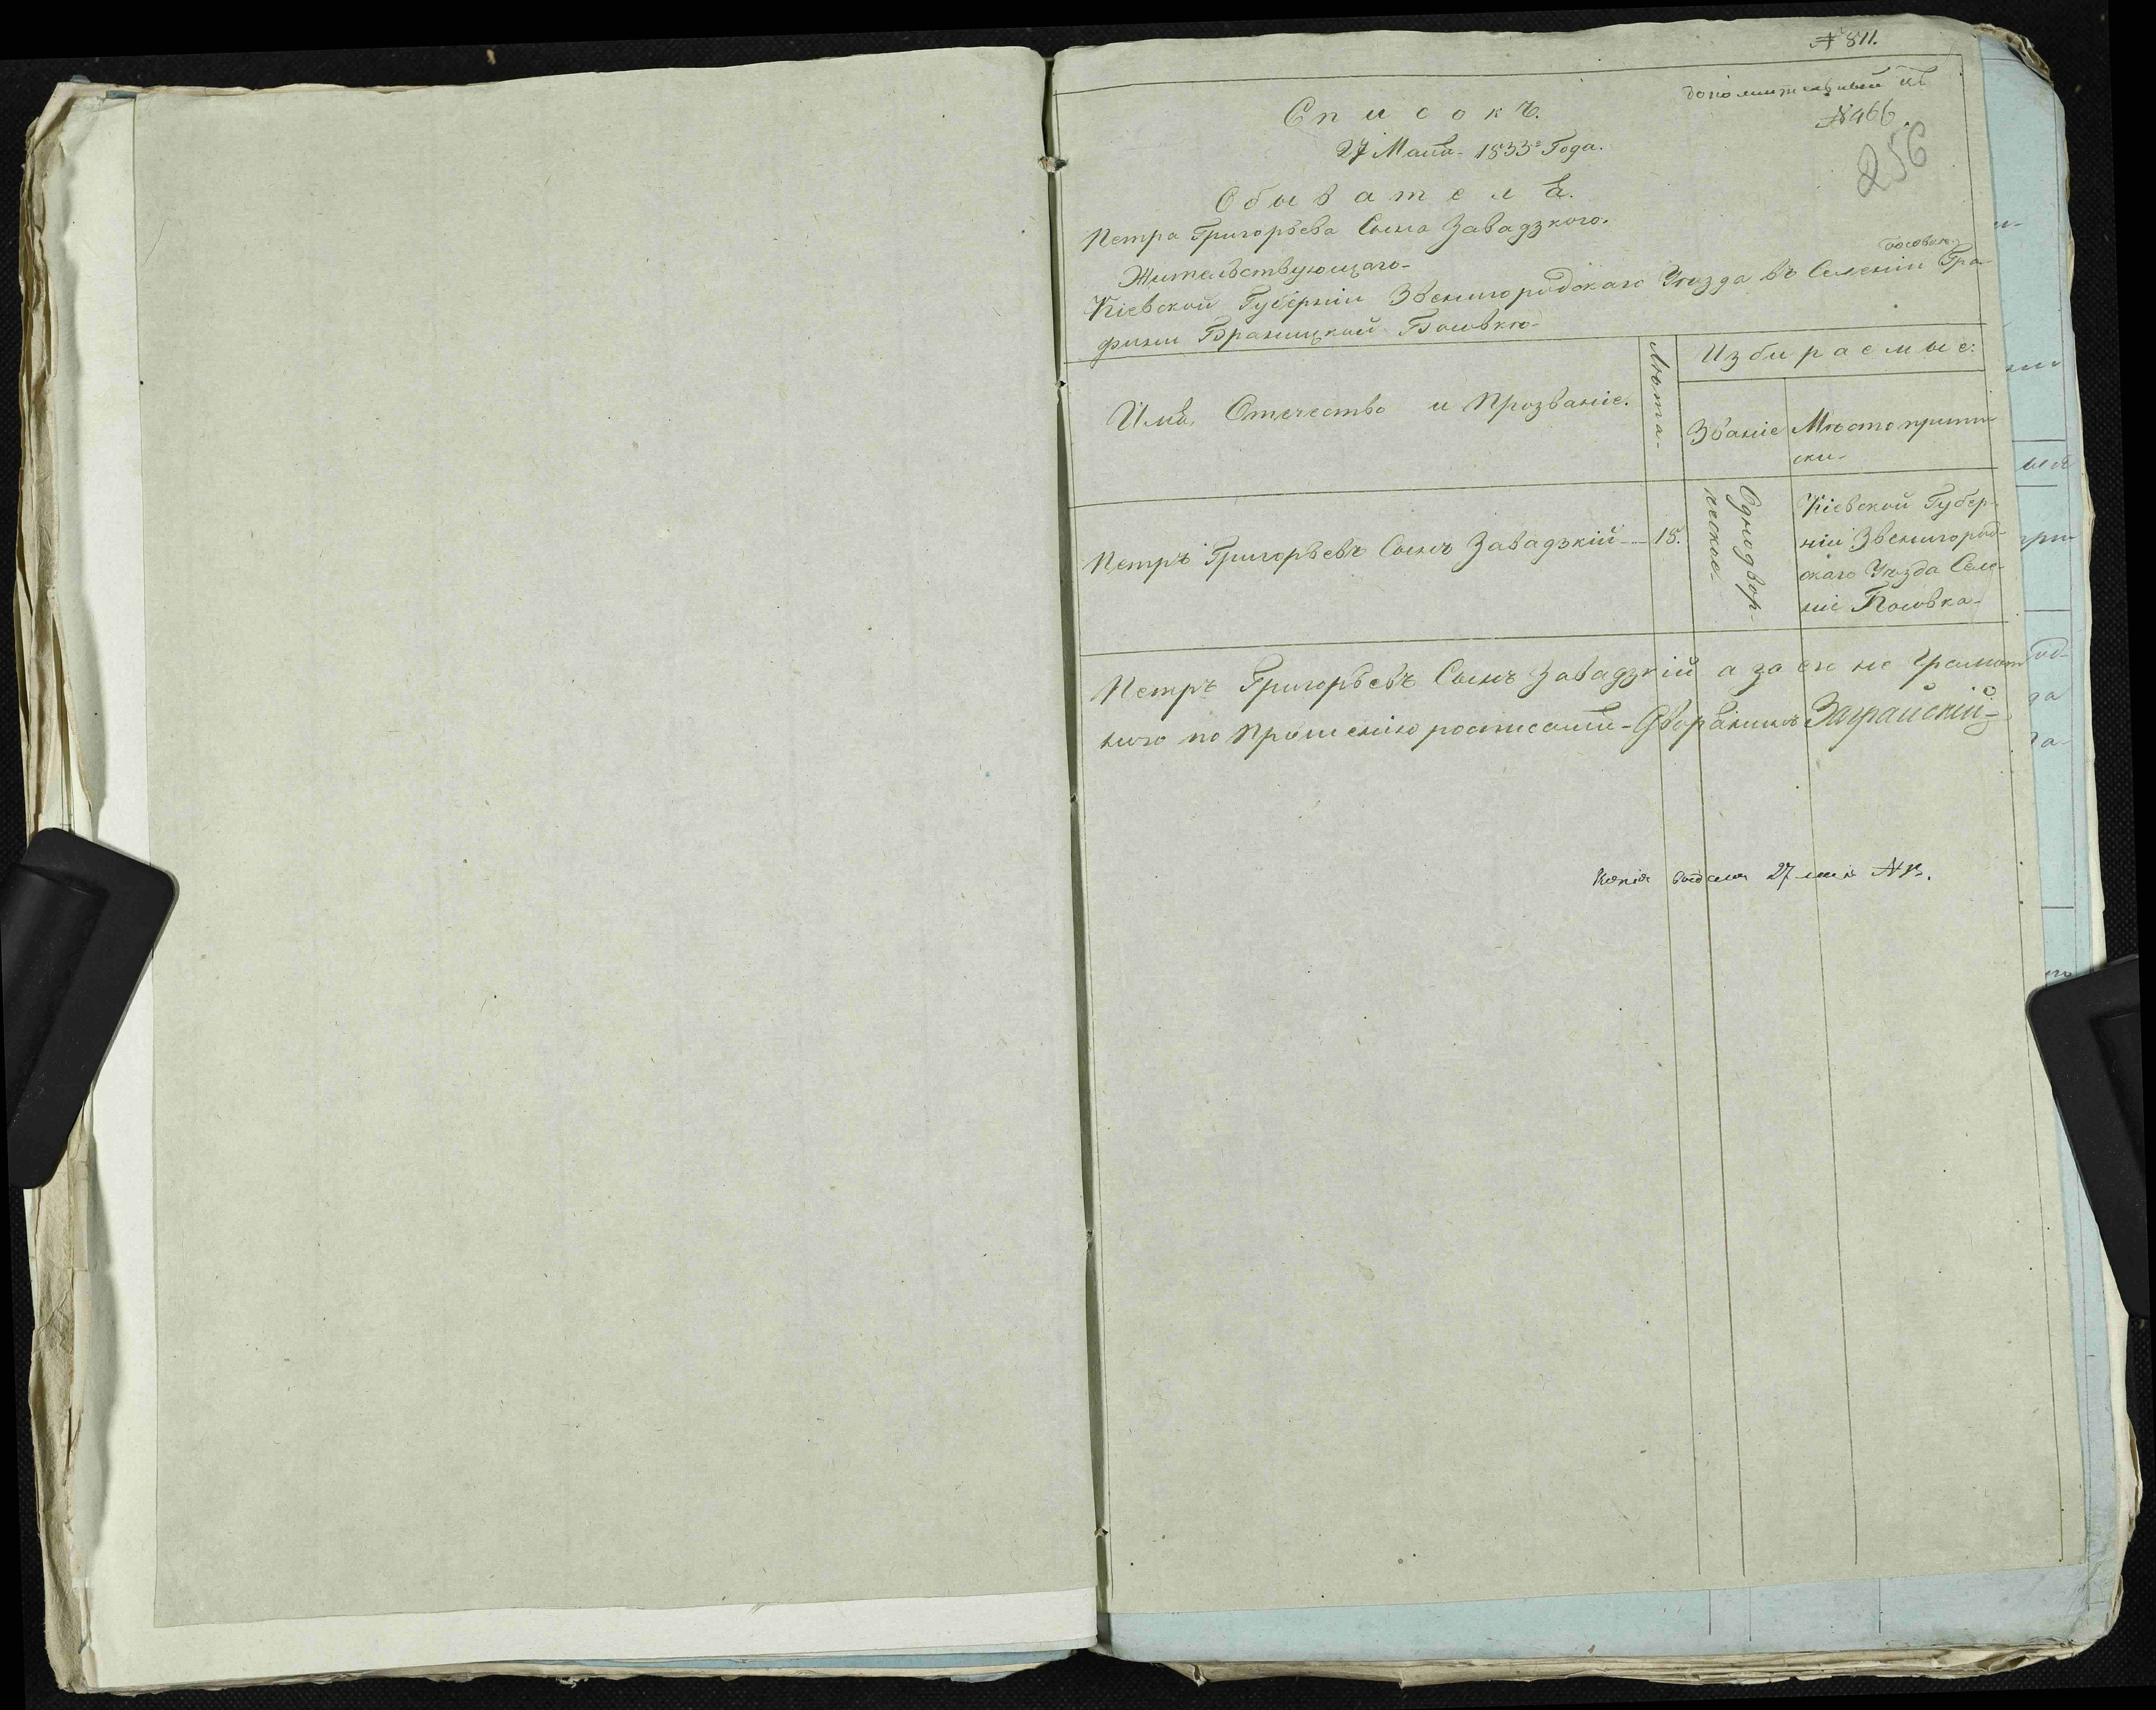 № 811.
дополнительный къ
№ 466.
256
Списокъ.
27 Маiя 1833го Года.
Обывателя.
Петра Григорьева Сына Завадзкого.
Жительствующаго
Кіевской Губерніи Звенигородскаго Уезда въ Селеніи Гра-
фини Браницкой Босовкѣ
Имя, Отечество и Прозваніе.
Лѣта
Избираемые:
Званіе
Мѣсто припи-
ски
Петръ Григорьевъ Сынъ Завадзкій
15.
Однодвор-
ческое
Кіевской Губер-
ніи Звенигород-
скаго Уѣзда Селе-
ніе Босовка
Петръ Григорьевъ Сынъ Завадзкій а за его не грамот
ного по Прошенію росписался Дворянинъ
Копія выдана 27 маія